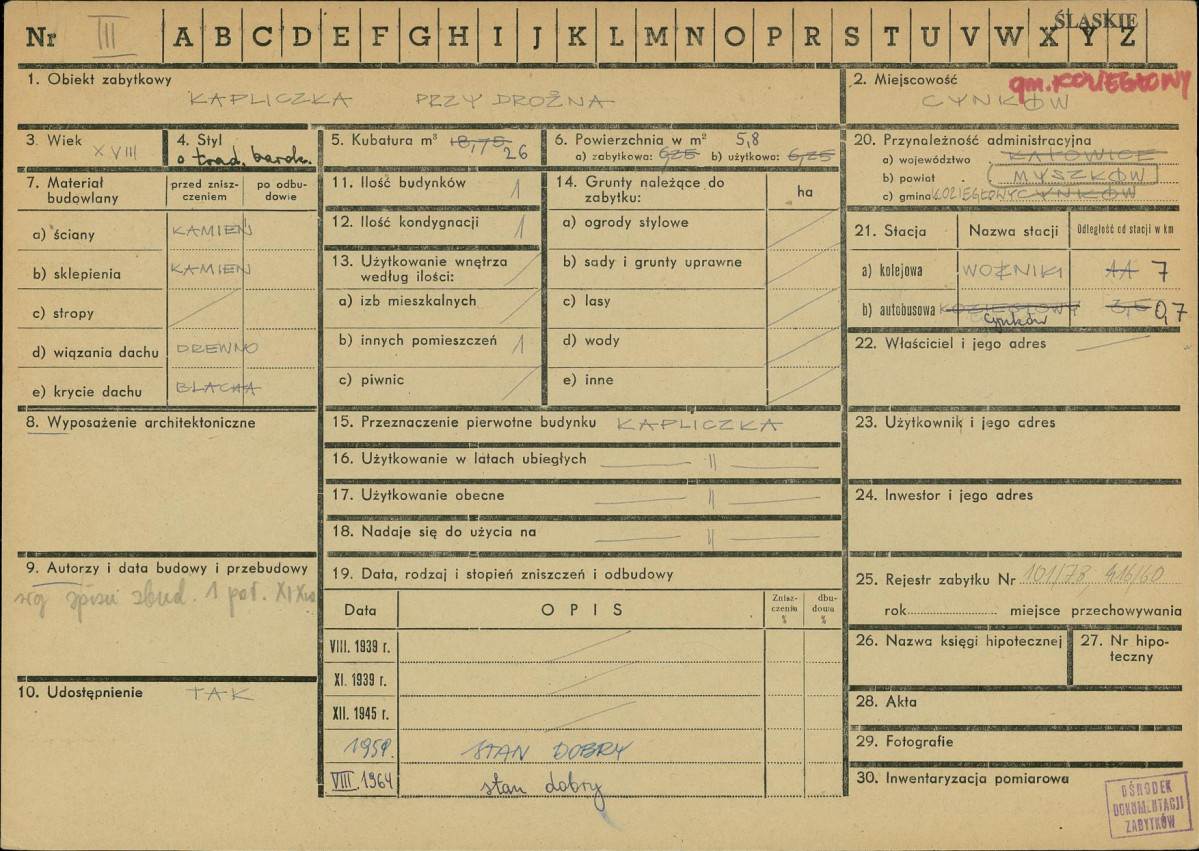 ŚLĄSKIE
Nr III A B C D E F G H I J K L M N O P R S T U V W X Y Z
1. Obiekt zabytkowy
KAPLICZKA PRZYDROŻNA
2. Miejscowość
gm. KOZIEGŁOWY
CYNKÓW
3. Wiek
XVIII
4. Styl
o trad. barok.
5. Kubatura m³ 18,75
26
6. Powierzchnia w m² 5,8
a) zabytkowa: 6,25 b) użytkowa: 6,25
20. Przynależność administracyjna
a) województwo KATOWICE
b) powiat MYSZKÓW
c) gmina KOZIEGŁOWY CYNKÓW
7. Materiał budowlany
przed zniszczeniem
po odbudowie
a) ściany KAMIEŃ
b) sklepienia KAMIEŃ
c) stropy
d) wiązania dachu DREWNO
e) krycie dachu BLACHA
11. Ilość budynków 1
12. Ilość kondygnacji 1
13. Użytkowanie wnętrza
według ilości:
a) izb mieszkalnych
b) innych pomieszczeń 1
c) piwnic
14. Grunty należące do
zabytku:
ha
a) ogrody stylowe
b) sady i grunty uprawne
c) lasy
d) wody
e) inne
21. Stacja Nazwa stacji Odległość od stacji w km
a) kolejowa WOŹNIKI 7
b) autobusowa KOZIEGŁOWY 3,5 0,7
Cynków
22. Właściciel i jego adres
8. Wyposażenie architektoniczne
15. Przeznaczenie pierwotne budynku KAPLICZKA
16. Użytkowanie w latach ubiegłych — || —
17. Użytkowanie obecne — || —
18. Nadaje się do użycia na — || —
23. Użytkownik i jego adres
24. Inwestor i jego adres
9. Autorzy i data budowy i przebudowy
wg spisu zbud. 1 poł. XIXw
10. Udostępnienie TAK
19. Data, rodzaj i stopień zniszczeń i odbudowy
Data OPIS Zniszczenia % dbudowa %
VIII. 1939 r.
XI. 1939 r.
XII. 1945 r.
1959. STAN DOBRY
VIII.1964 stan dobry
25. Rejestr zabytku Nr 101/78, 416/60
rok miejsce przechowywania
26. Nazwa księgi hipotecznej
27. Nr hipoteczny
28. Akta
29. Fotografie
30. Inwentaryzacja pomiarowa
OŚRODEK
DOKUMENTACJI
ZABYTKÓW